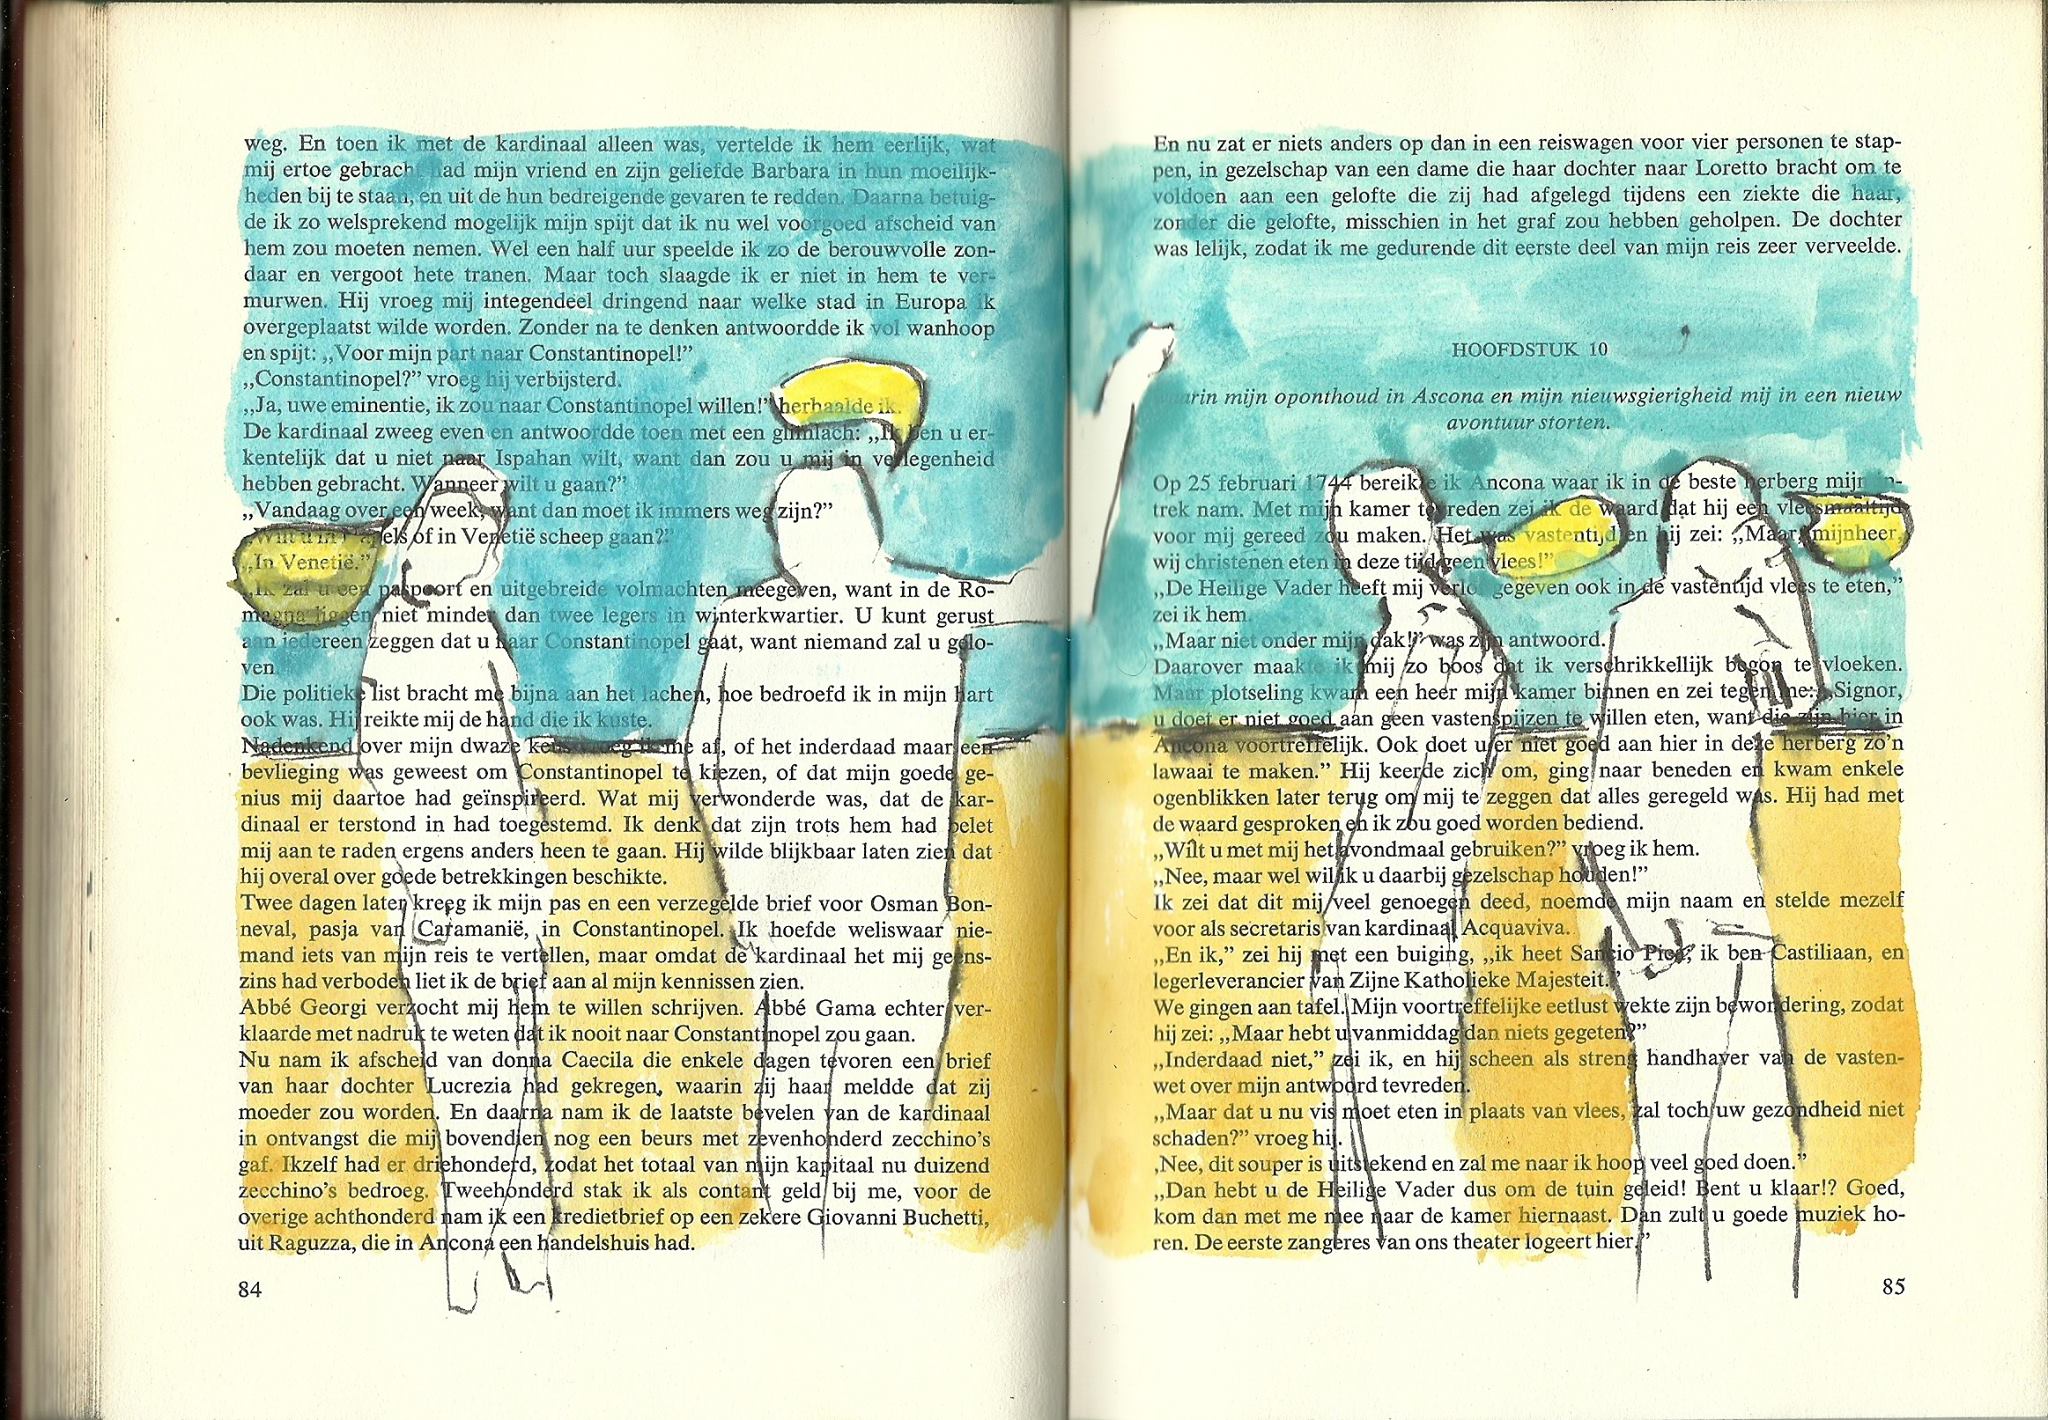 weg. En toen ik met de kardinaal alleen was, vertelde ik hem eerlijk, wat
mij ertoe gebracht had mijn vriend en zijn geliefde Barbara in hun moeilijk-
heden bij te staan, en uit de hun bedreigende gevaren te redden. Daarna betuig-
de ik zo welsprekend mogelijk mijn spijt dat ik nu wel voorgoed afscheid van
hem zou moeten nemen. Wel een half uur speelde ik zo de berouwvolle zon-
daar en vergoot hete tranen. Maar toch slaagde ik er niet in hem te ver-
murwen. Hij vroeg mij integendeel dringend naar welke stad in Europa ik
overgeplaatst wilde worden. Zonder na te denken antwoordde ik vol wanhoop
en spijt: „Voor mijn part naar Constantinopel!”
„Constantinopel?” vroeg hij verbijsterd.
„Ja, uwe eminentie, ik zou naar Constantinopel willen!” herhaalde ik.
De kardinaal zweeg even en antwoordde toen met een glimlach: „Ik ben u er-
kentelijk dat u niet naar Ispahan wilt, want dan zou u mij in verlegenheid
hebben gebracht. Wanneer wilt u gaan?”
„Vandaag over een week, want dan moet ik immers weg zijn?”
„Wilt u in of in Venetië scheep gaan?”
„In Venetië.”
„Ik zal u een paspoort en uitgebreide volmachten meegeven, want in de Ro-
magna liggen niet minder dan twee legers in winterkwartier. U kunt gerust
aan iedereen zeggen dat u naar Constantinopel gaat, want niemand zal u gelo-
ven.
Die politieke list bracht me bijna aan het lachen, hoe bedroefd ik in mijn hart
ook was. Hij reikte mij de hand die ik kuste.
Nadenkend over mijn dwaze keus vroeg ik me af, of het inderdaad maar een
bevlieging was geweest om Constantinopel te kiezen, of dat mijn goede ge-
nius mij daartoe had geïnspireerd. Wat mij verwonderde was, dat de kar-
dinaal er terstond in had toegestemd. Ik denk dat zijn trots hem had belet
mij aan te raden ergens anders heen te gaan. Hij wilde blijkbaar laten zien dat
hij overal over goede betrekkingen beschikte.
Twee dagen later kreeg ik mijn pas en een verzegelde brief voor Osman Bon-
neval, pasja van Caramanië, in Constantinopel. Ik hoefde weliswaar nie-
mand iets van mijn reis te vertellen, maar omdat de kardinaal het mij geens-
zins had verboden liet ik de brief aan al mijn kennissen zien.
Abbé Georgi verzocht mij hem te willen schrijven. Abbé Gama echter ver-
klaarde met nadruk te weten dat ik nooit naar Constantinopel zou gaan.
Nu nam ik afscheid van donna Caecila die enkele dagen tevoren een brief
van haar dochter Lucrezia had gekregen, waarin zij haar meldde dat zij
moeder zou worden. En daarna nam ik de laatste bevelen van de kardinaal
in ontvangst die mij bovendien nog een beurs met zevenhonderd zecchino’s
gaf. Ikzelf had er driehonderd, zodat het totaal van mijn kapitaal nu duizend
zecchino’s bedroeg. Tweehonderd stak ik als contant geld bij me, voor de
overige achthonderd nam ik een kredietbrief op een zekere Giovanni Buchetti,
uit Raguzza, die in Ancona een handelshuis had.
84
En nu zat er niets anders op dan in een reiswagen voor vier personen te stap-
pen, in gezelschap van een dame die haar dochter naar Loretto bracht om te
voldoen aan een gelofte die zij had afgelegd tijdens een ziekte die haar,
zonder die gelofte, misschien in het graf zou hebben geholpen. De dochter
was lelijk, zodat ik me gedurende dit eerste deel van mijn reis zeer verveelde.
HOOFDSTUK 10
waarin mijn oponthoud in Ascona en mijn nieuwsgierigheid mij in een nieuw
avontuur storten.
Op 25 februari 1744 bereikte ik Ancona waar ik in de beste herberg mijn in-
trek nam. Met mijn kamer tevreden zei ik de waard dat hij een vleesmaaltijd
voor mij gereed zou maken. Het was vastentijd en hij zei: „Maar mijnheer,
wij christenen eten in deze tijd geen vlees!”
„De Heilige Vader heeft mij verlof gegeven ook in de vastentijd vlees te eten,”
zei ik hem.
„Maar niet onder mijn dak!” was zijn antwoord.
Daarover maakte ik mij zo boos dat ik verschrikkellijk begon te vloeken.
Maar plotseling kwam een heer mijn kamer binnen en zei tegen me: „Signor,
u doet er niet goed aan geen vastenspijzen te willen eten, want die zijn hier in
Ancona voortreffelijk. Ook doet u er niet goed aan hier in deze herberg zo’n
lawaai te maken.” Hij keerde zich om, ging naar beneden en kwam enkele
ogenblikken later terug om mij te zeggen dat alles geregeld was. Hij had met
de waard gesproken en ik zou goed worden bediend.
„Wilt u met mij het avondmaal gebruiken?” vroeg ik hem.
„Nee, maar wel wil ik u daarbij gezelschap houden!”
Ik zei dat dit mij veel genoegen deed, noemde mijn naam en stelde mezelf
voor als secretaris van kardinaal Acquaviva.
„En ik,” zei hij met een buiging, „ik heet Sancio Pico, ik ben Castiliaan, en
legerleverancier van Zijne Katholieke Majesteit.”
We gingen aan tafel. Mijn voortreffelijke eetlust wekte zijn bewondering, zodat
hij zei: „Maar hebt u vanmiddag dan niets gegeten?”
„Inderdaad niet,” zei ik, en hij scheen als streng handhaver van de vasten-
wet over mijn antwoord tevreden.
„Maar dat u nu vis moet eten in plaats van vlees, zal toch uw gezondheid niet
schaden?” vroeg hij.
‚Nee, dit souper is uitstekend en zal me naar ik hoop veel goed doen.”
„Dan hebt u de Heilige Vader dus om de tuin geleid! Bent u klaar!? Goed,
kom dan met me mee naar de kamer hiernaast. Dan zult u goede muziek ho-
ren. De eerste zangeres van ons theater logeert hier.”
85